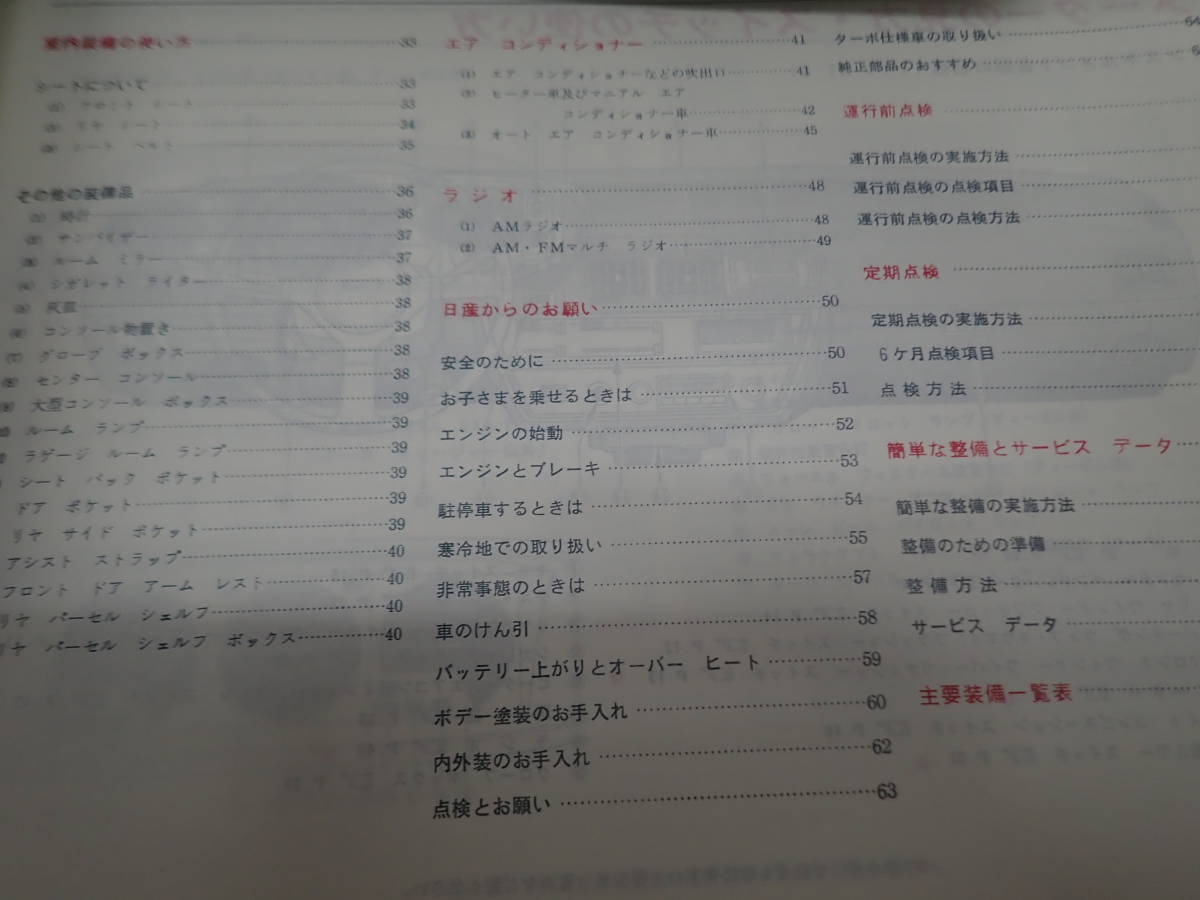 室内装備の使い方……33
シートについて……33
(1) フロント シート……33
(2) リヤ シート……34
(3) シート ベルト……35
その他の装備品……36
(1) 時計……36
(2) サンバイザー……37
(3) ルーム ミラー……37
(4) シガレット ライター……38
(5) 灰皿……38
(6) コンソール物置き……38
(7) グローブ ボックス……38
(8) センター コンソール……38
(9) 大型コンソール ボックス……39
ルーム ランプ……39
ラゲージ ルーム ランプ……39
シート バック ポケット……39
ドア ポケット……39
リヤ サイド ポケット……39
アシスト ストラップ……40
フロント ドア アーム レスト……40
リヤ パーセル シェルフ……40
リヤ パーセル シェルフ ボックス……40
エア コンディショナー……41
(1) エア コンディショナーなどの吹出口……41
(2) ヒーター車及びマニアル エア
コンディショナー車……42
(3) オート エア コンディショナー車……45
ラジオ……48
(1) AMラジオ……48
(2) AM・FMマルチ ラジオ……49
日産からのお願い……50
安全のために……50
お子さまを乗せるときは……51
エンジンの始動……52
エンジンとブレーキ……53
駐停車するときは……54
寒冷地での取り扱い……55
非常事態のときは……57
車のけん引……58
バッテリー上がりとオーバー ヒート……59
ボデー塗装のお手入れ……60
内外装のお手入れ……62
点検とお願い……63
ターボ仕様車の取り扱い……64
純正部品のおすすめ……
運行前点検……
運行前点検の実施方法……
運行前点検の点検項目……
運行前点検の点検方法……
定期点検……
定期点検の実施方法……
6ケ月点検項目……
点検方法……
簡単な整備とサービス データ……
簡単な整備の実施方法……
整備のための準備……
整備方法……
サービス データ……
主要装備一覧表……